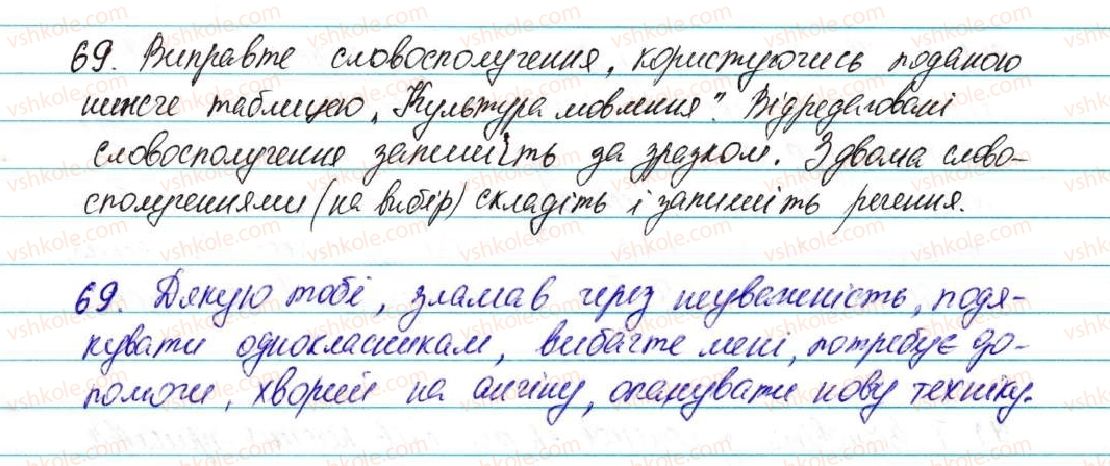 69. Виправте словосполучення, користуючись поданою
нижче таблицею „Культура мовлення”. Відредаговані
словосполучення запишіть за зразком. З двома слово-
сполученнями (на вибір) складіть і запишіть речення.
69. Дякую тобі, зламав через неуважність, подя-
кувати однокласникам, вибачте мені, потребує до-
помоги, хворий на ангіну, опанувати нову техніку.